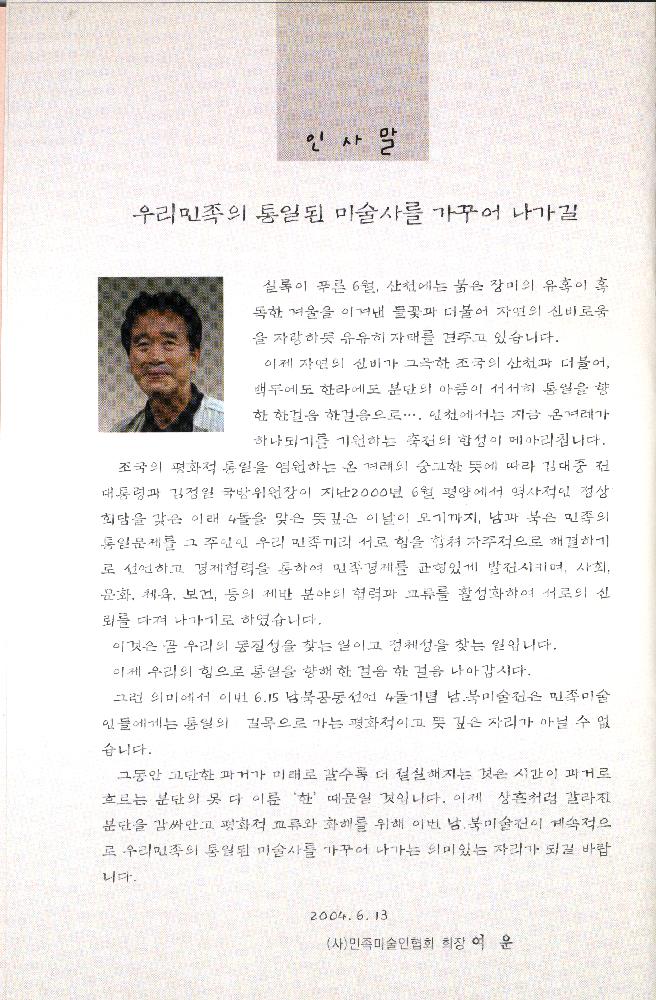 인 사 말
우리민족의 통일된 미술사를 가꾸어 나가길
실록이 푸른 6월, 산천에는 붉은 장미의 유혹이 혹
독한 겨울을 이겨낸 들꽃과 더불어 자연의 신비로움
을 자랑하듯 유유히 자태를 견주고 있습니다.
이제 자연의 신비가 그윽한 조국의 산천과 더불어,
백두에도 한라에도 분단의 아픔이 서서히 통일을 향
한 한걸음 한걸음으로···. 인천에서는 지금 온겨레가
하나되기를 기원하는 축전의 함성이 메아리칩니다.
조국의 평화적 통일을 염원하는 온 겨레의 숭고한 뜻에 따라 김대중 전
대통령과 김정일 국방위원장이 지난2000년 6월 평양에서 역사적인 정상
회담을 갖은 이래 4돌을 맞은 뜻깊은 이날이 오기까지, 남과 북은 민족의
통일문제를 그 주인인 우리 민족끼리 서로 힘을 합쳐 자주적으로 해결하기
로 선언하고 경제협력을 통하여 민족경제를 균형있게 발전시키며, 사회,
문화, 체육, 보건, 등의 제반 분야의 협력과 교류를 활성화하여 서로의 신
뢰를 다져 나가기로 하였습니다.
이것은 곧 우리의 동질성을 찾는 일이고 정체성을 찾는 일입니다.
이제 우리의 힘으로 통일을 향해 한 걸음 한 걸음 나아갑시다.
그런 의미에서 이번 6.15 남북공동선언 4돌기념 남.북미술전은 민족미술
인들에게는 통일의 길목으로 가는 평화적이고 뜻 깊은 자리가 아닐 수 없
습니다.
그동안 고단한 과거가 미래로 갈수록 더 절실해지는 것은 시간이 과거로
흐르는 분단의 못 다 이룬 '한' 때문일 것입니다. 이제 상흔처럼 갈라진
분단을 감싸안고 평화적 교류와 화해를 위해 이번 남.북미술전이 계속적으
로 우리민족의 통일된 미술사를 가꾸어 나가는 의미있는 자리가 되길 바랍
니다.
2004. 6. 13
(사)민족미술인협회 회장 여 운